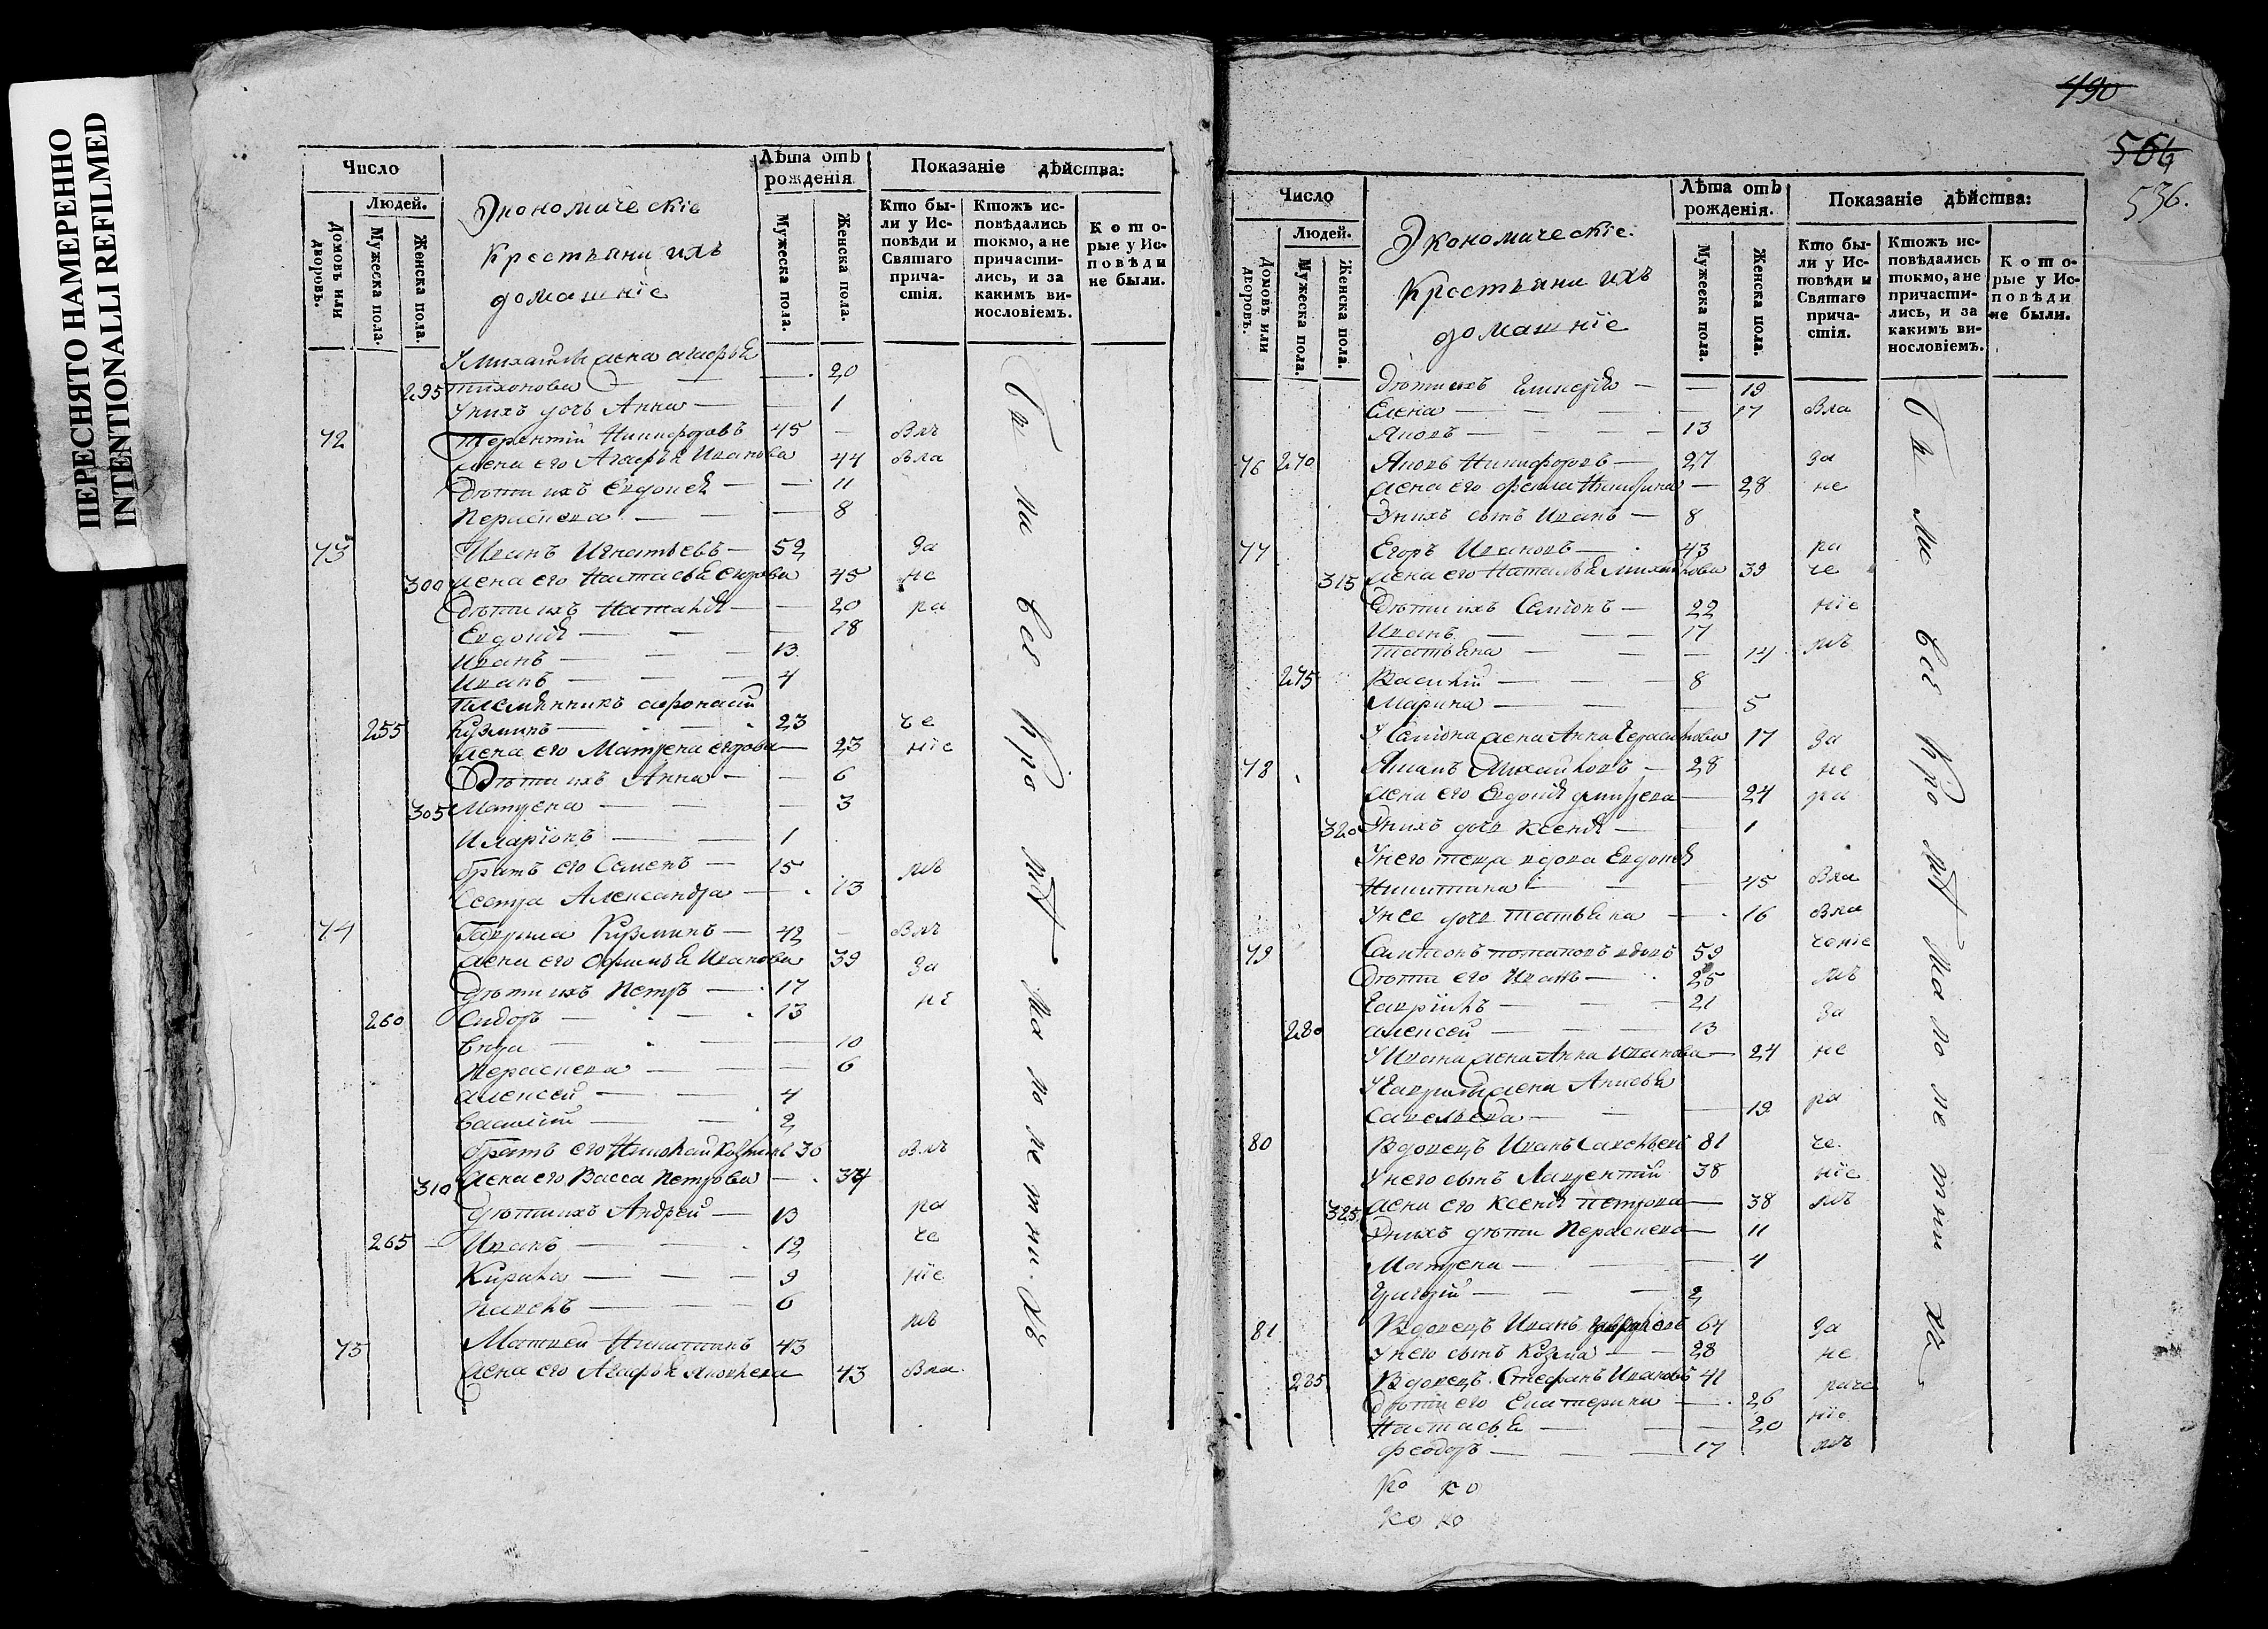 ПЕРЕСНЯТО НАМЕРЕННО
INTENTIONALLI REFILMED
Число
Людей.
Домовъ или дворовъ.
Мужеска пола.
Женска пола.
Экономическіе
Крестьяни ихъ
домашніе
Лѣта отъ рожденія
Мужеска пола.
Женска пола.
Показаніе дѣйства:
Кто были у Исповѣди и Святаго причастія.
Ктожъ исповѣдались токмо, а не причастились, и за какимъ винословіемъ.
Которые у Исповѣди не были.
У Михаилы жена Агафья
295 Тихонова 20
У нихъ дочь Анна 1
72 Терентій Никифоровъ 45 Въ
жена его Агафья Иванова 44
Дѣти ихъ Евдокія 11
Пераскева 8
73 Иванъ Игнатьевъ 52 за
300 жена его Настасья Егорова 45 не
Дѣти ихъ Наталія 20 ра
Евдокія 18
Иванъ 13
Иванъ 4
Племянникъ Афонасій
255 Кузминъ 23 че
жена его Матрена Егорова 23 ніе
Дѣти ихъ Анна 6
305 Матрена 3
Иларіонъ 1
Братъ его Семенъ 15 мъ
Сестра Александра 13
74 Гаврила Кузминъ 42
жена его Офимья Иванова 39 за
Дѣти ихъ Петръ 17 не
260 Сидоръ 13
10
Пераскева 6
Алексей 4
Василій 2
Братъ его Николай Козминъ 36
310 жена его Васса Петрова 34
Дѣти ихъ Андрей 13 ра
265 Иванъ 12 че
Кирила 9 ніе
Павелъ 6 мъ
75 Матвей Никитинъ 43
жена его Агафья Яковлева 43
490
564
536.
Число
Людей.
Домовъ или дворовъ.
Мужеска пола.
Женска пола.
Экономическіе
Крестьяни ихъ
домашніе
Лѣта отъ рожденія.
Мужеска пола.
Женска пола.
Показаніе дѣйства:
Кто были у Исповѣди и Святаго причастія.
Ктожъ исповѣдались токмо, а не причастились, и за какимъ винословіемъ.
Которые у Исповѣди не были.
Дѣти ихъ Гликерія 19
Елена 17
Яковъ 13
76 270 Яковъ Никифоровъ 27 за
жена его Фекла Никитина 28 не
У нихъ сынъ Иванъ 8
77 Егоръ Ивановъ 43 ра
315 жена его Наталья Михайлова 39 че
Дѣти ихъ Семіонъ 22 ніе
Иванъ 17
Татьяна 14 мъ
275 Василій 8
Марина 5
У Семіона жена Анна Герасимова 17 за
78 Михайловъ 28 не
жена его Евдокія Дмитрева 24 ра
320 У нихъ дочь Ксенія 1
У него теща вдова Евдокія
Никитина 45
У нее дочь Татьяна 16
79 Самсонъ Потаповъ вдовъ 59 ченіе
Дѣти его Иванъ 25 мъ
Гаврилъ 21
280 Алексей 13 за
У Ивана жена Анна Иванова 24 не
У Гаврилы жена Анисья
Савельева 19 ра
80 Вдовецъ Иванъ Савельевъ 81 че
У него сынъ Лаврентій 38 ніе
325 жена его Ксенія Петрова 38 мъ
У нихъ дѣти Пераскева 11
Матрена 4
Григорій 2
81 Вдовецъ Иванъ Гавриловъ 64 за
У него сынъ Козма 28 не
285 Вдовецъ Стефанъ Ивановъ 41 раче
Дѣти его Екатерина 26 ніе
Настасья 20
Феодоръ 17 мъ
Ко ко
ко ко